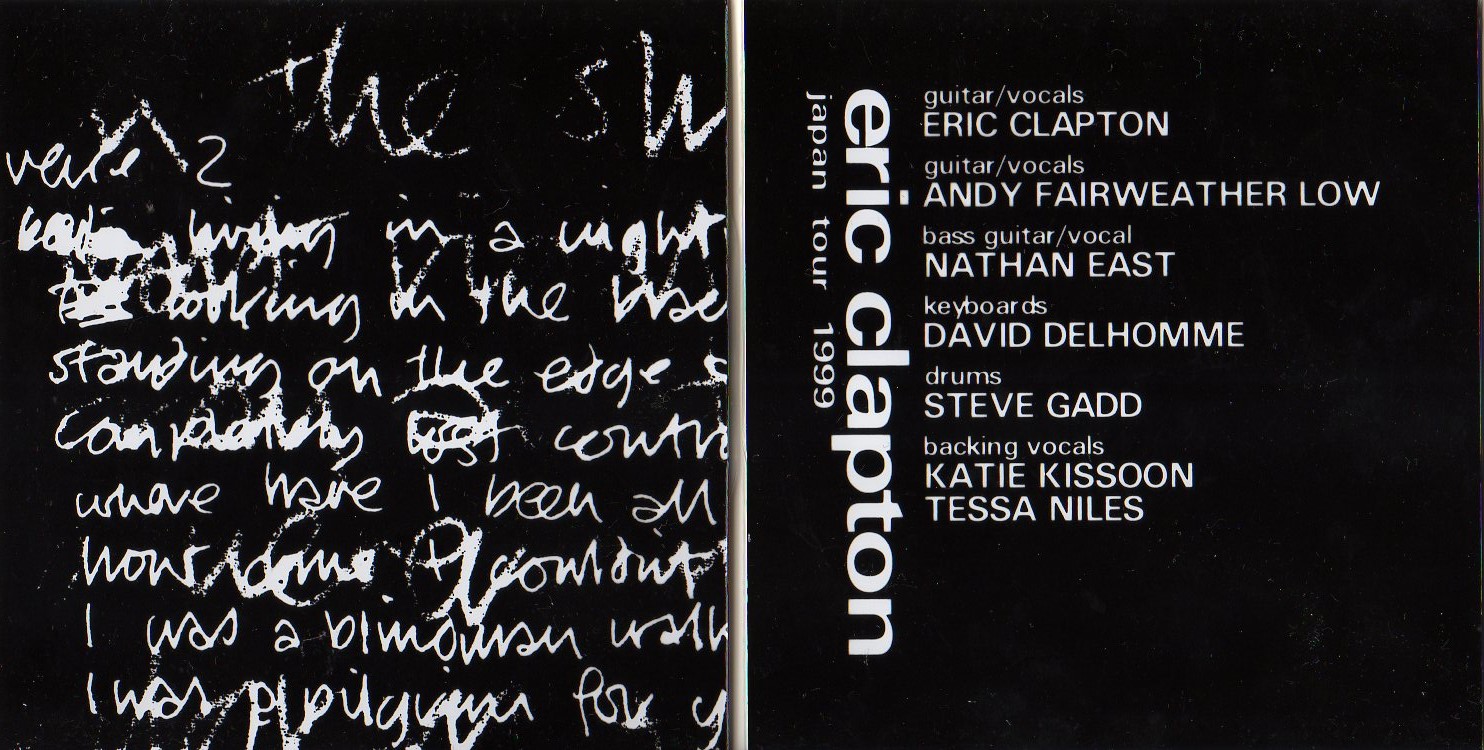 the sh
verse 2
living in a night
looking in the
standing on the edge
completely lost contr
where have I been all
how come I couldnt
I was a blindman walk
I was a pilgrim for y
eric clapton
japan tour 1999
guitar/vocals
ERIC CLAPTON
guitar/vocals
ANDY FAIRWEATHER LOW
bass guitar/vocal
NATHAN EAST
keyboards
DAVID DELHOMME
drums
STEVE GADD
backing vocals
KATIE KISSOON
TESSA NILES